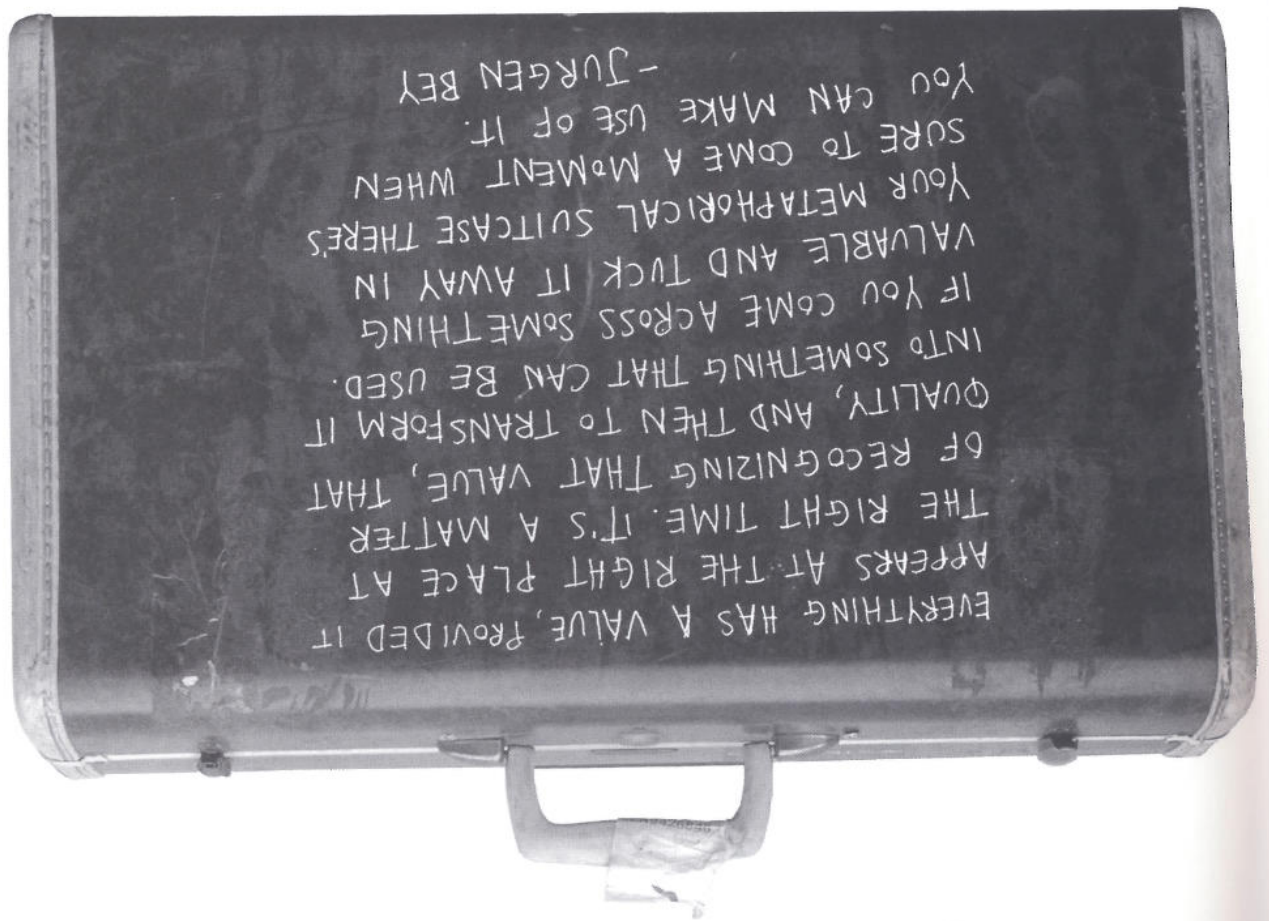 EVERYTHING HAS A VALUE, PROVIDED IT
APPEARS AT THE RIGHT PLACE AT
THE RIGHT TIME. IT'S A MATTER
OF RECOGNIZING THAT VALUE, THAT
QUALITY, AND THEN TO TRANSFORM IT
INTO SOMETHING THAT CAN BE USED.
IF YOU COME ACROSS SOMETHING
VALUABLE AND TUCK IT AWAY IN
YOUR METAPHORICAL SUITCASE THERE'S
SURE TO COME A MOMENT WHEN
YOU CAN MAKE USE OF IT.
-JURGEN BEY